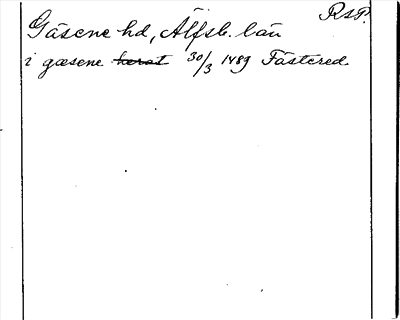 Gäsene hd, Älfsb. län RsP.
i gæsene hærat 30/3 1489 Fästered.